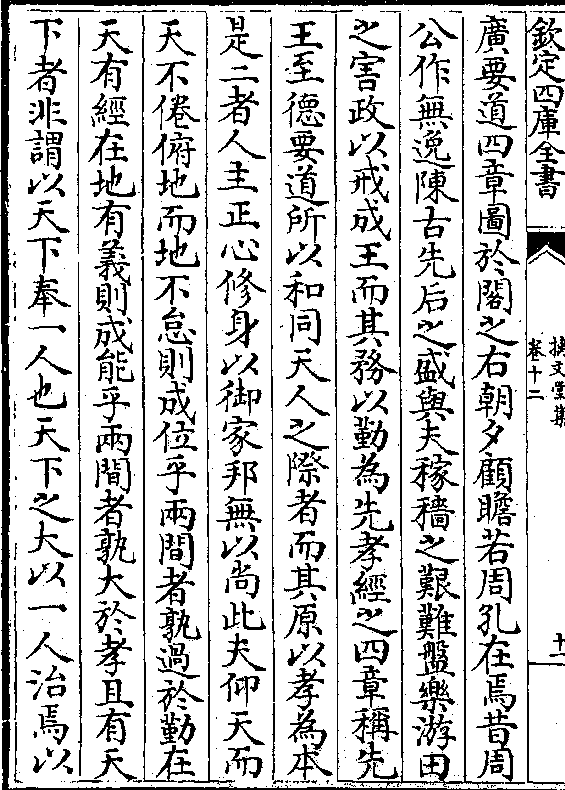 欽定四庫全書
摛文堂集
卷十二
十一
廣要道四章圖於閣之右朝夕顧瞻若周孔在焉昔周
公作無逸陳古先后之盛與夫稼穡之艱難盤樂游田
之害政以戒成王而其務以勤為先孝經之四章稱先
王至德要道所以和同天人之際者而其原以孝為本
是二者人主正心修身以御家邦無以尚此夫仰天而
天不倦俯地而地不怠則成位乎兩間者孰過於勤在
天有經在地有義則成能乎兩間者孰大於孝且有天
下者非謂以天下奉一人也天下之大以一人治焉以